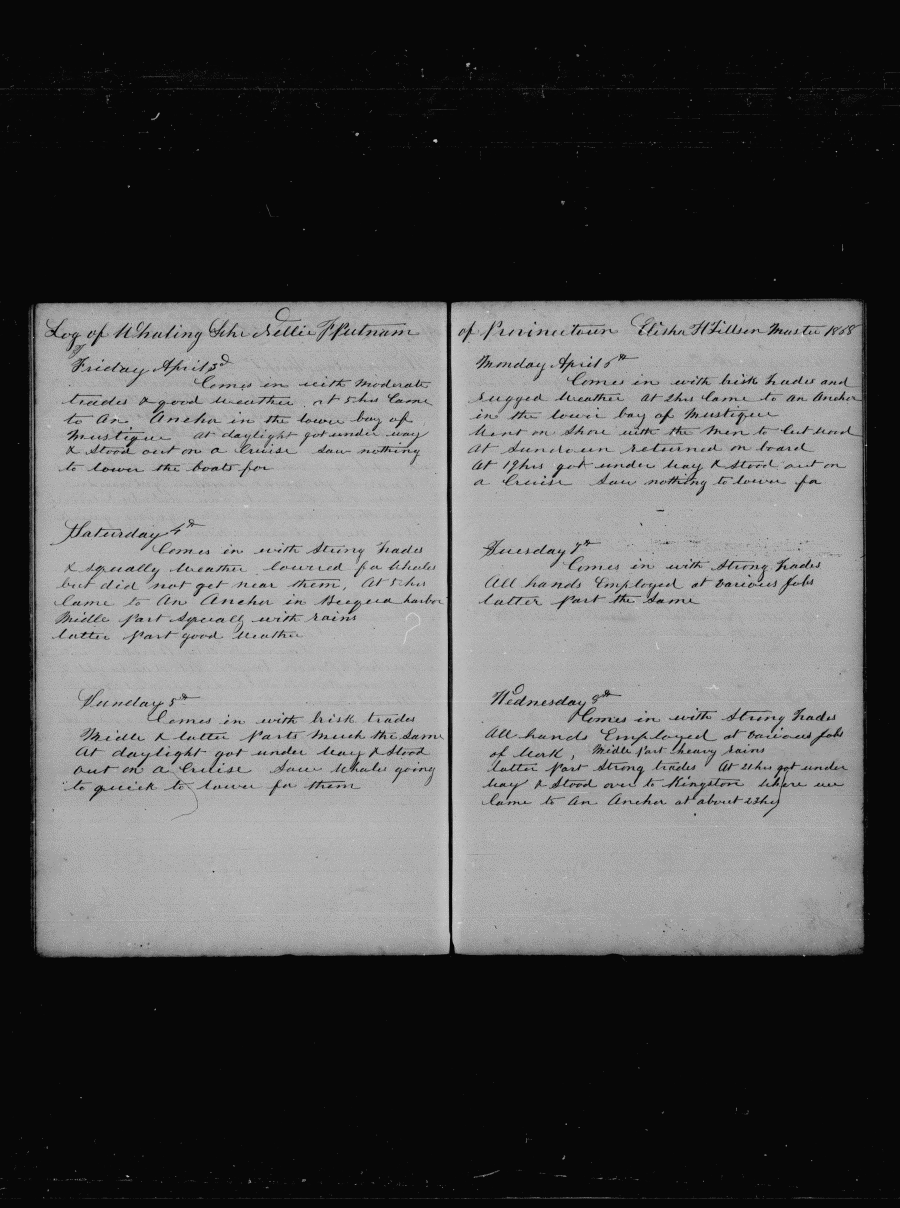 Log of Whaling Schr Nellie S Putnam
Friday April 3d
Comes in with moderate
trades & good weather. At 5 hrs Came
to An Anchor in the lower bay of
Mustique At daylight got under way
& Stood out on a Cruise Saw nothing
to lower the boats for
Saturday 4th
Comes in with Strong Trades
& squally Weather lowered for Whales
but did not get near them, At 5 hrs
Came to An Anchor in Becquia harbor
Midle Part Squally with rains
latter Part good Weather
Sunday 5th
Comes in with brisk trades
Midle & latter Parts Much the Same
At daylight got under Way & Stood
out on a Cruise Saw Whales going
to quick to lower for them
of Provincetown Elisha H Tillson Master 1868
Monday April 6th
Comes in with brisk Trades and
rugged Weather At 2 hrs Came to An Anchor
in the lower bay of Mustique
Went on Shore with the Men to Cut Wood
At Sundown returned on board
At 19 hrs got under Way & Stood out on
a Cruise Saw nothing to lower for
Tuesday 7th
Comes in with Strong Trades
All hands Employed at various Jobs
latter Part the Same
Wednesday 8th
Comes in with Strong Trades
All hands Employed at various Jobs
of Work, Midle Part heavy rains
latter Part Strong trades At 21 hrs got under
Way & Stood over to Kingston Where we
Came to An Anchor at about 23 hrs